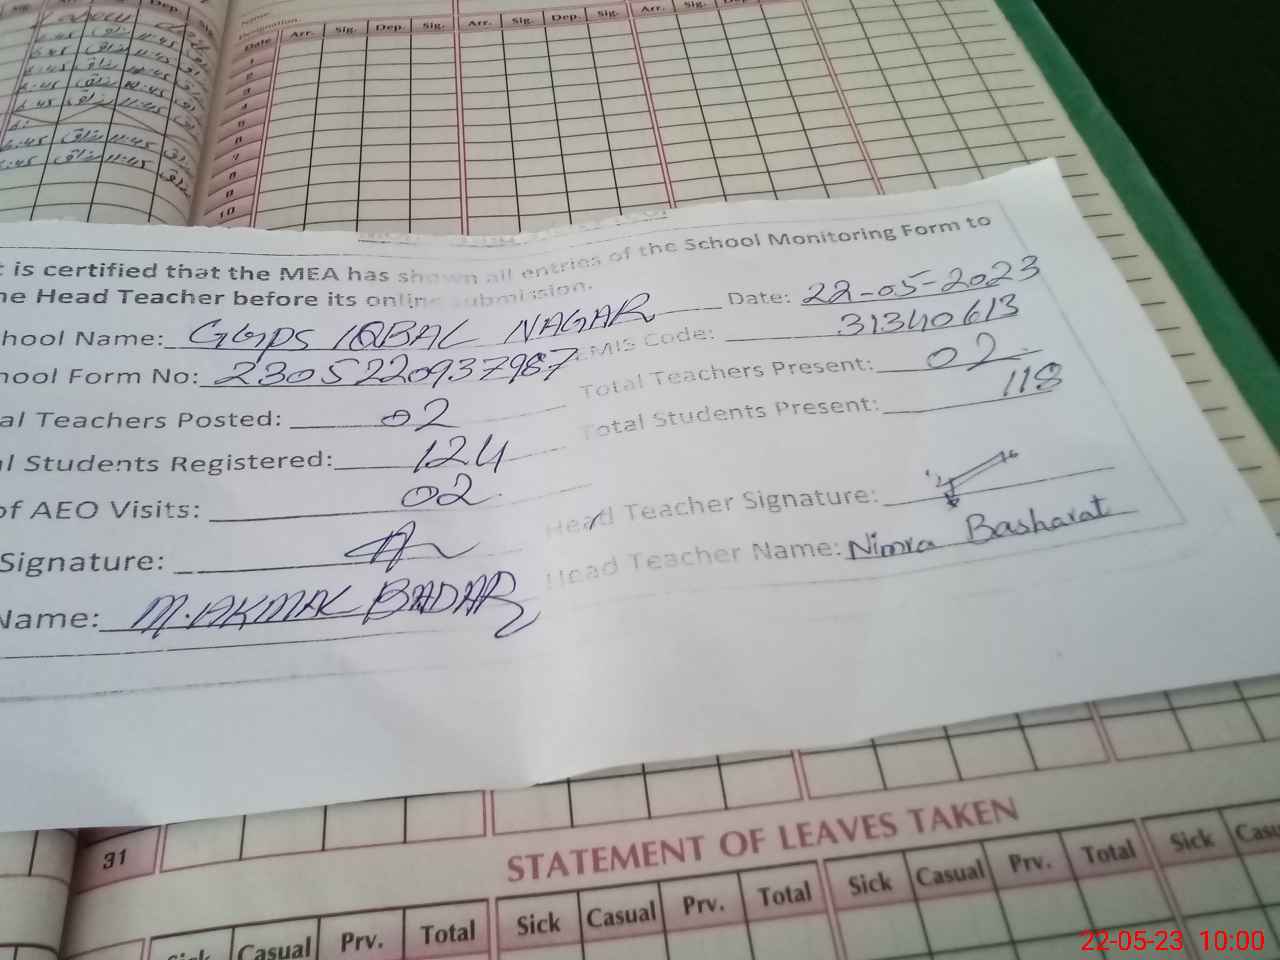 Sig. Dep.
Name:
Designation.
Date Arr. Sig. Dep. Sig. Arr. Sig. Dep. Sig. Arr. Sig. Dep.
1
2
3
4
5
6
7
8
9
10
t is certified that the MEA has shown all entries of the School Monitoring Form to
he Head Teacher before its online submission.
hool Name: GGPS IQBAL NAGAR Date: 22-05-2023
hool Form No: 2305220937987 EMIS Code: 31340613
al Teachers Posted: 02 Total Teachers Present: 02
l Students Registered: 124 Total Students Present: 118
of AEO Visits: 02
Signature: Head Teacher Signature:
Name: M. AKMAL BADAR Head Teacher Name: Nimra Basharat
31
STATEMENT OF LEAVES TAKEN
Sick Casual Prv. Total Sick Casual Prv. Total Sick Casual Prv. Total Sick Casu
22-05-23 10:00